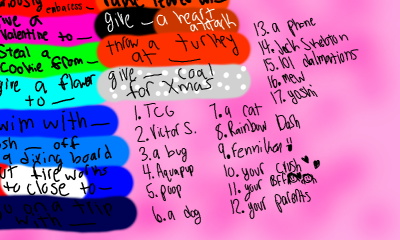 embaress
give a valentine to
steal a cookie from
give a flower to
swim with
off a diving board
fireworks to close to
trip with
give a heart attack
throw a turkey at
give coal for xmas
1. TCG
2. Victor S.
3. a bug
4. Aquapup
5. poop
6. a dog
7. a cat
8. Rainbow Dash
9. fenniken
10. your crush
11. your BFF
12. your parents
13. a phone
14. Jack Skeleton
15. 101 dalmations
16. mew
17. yoshi